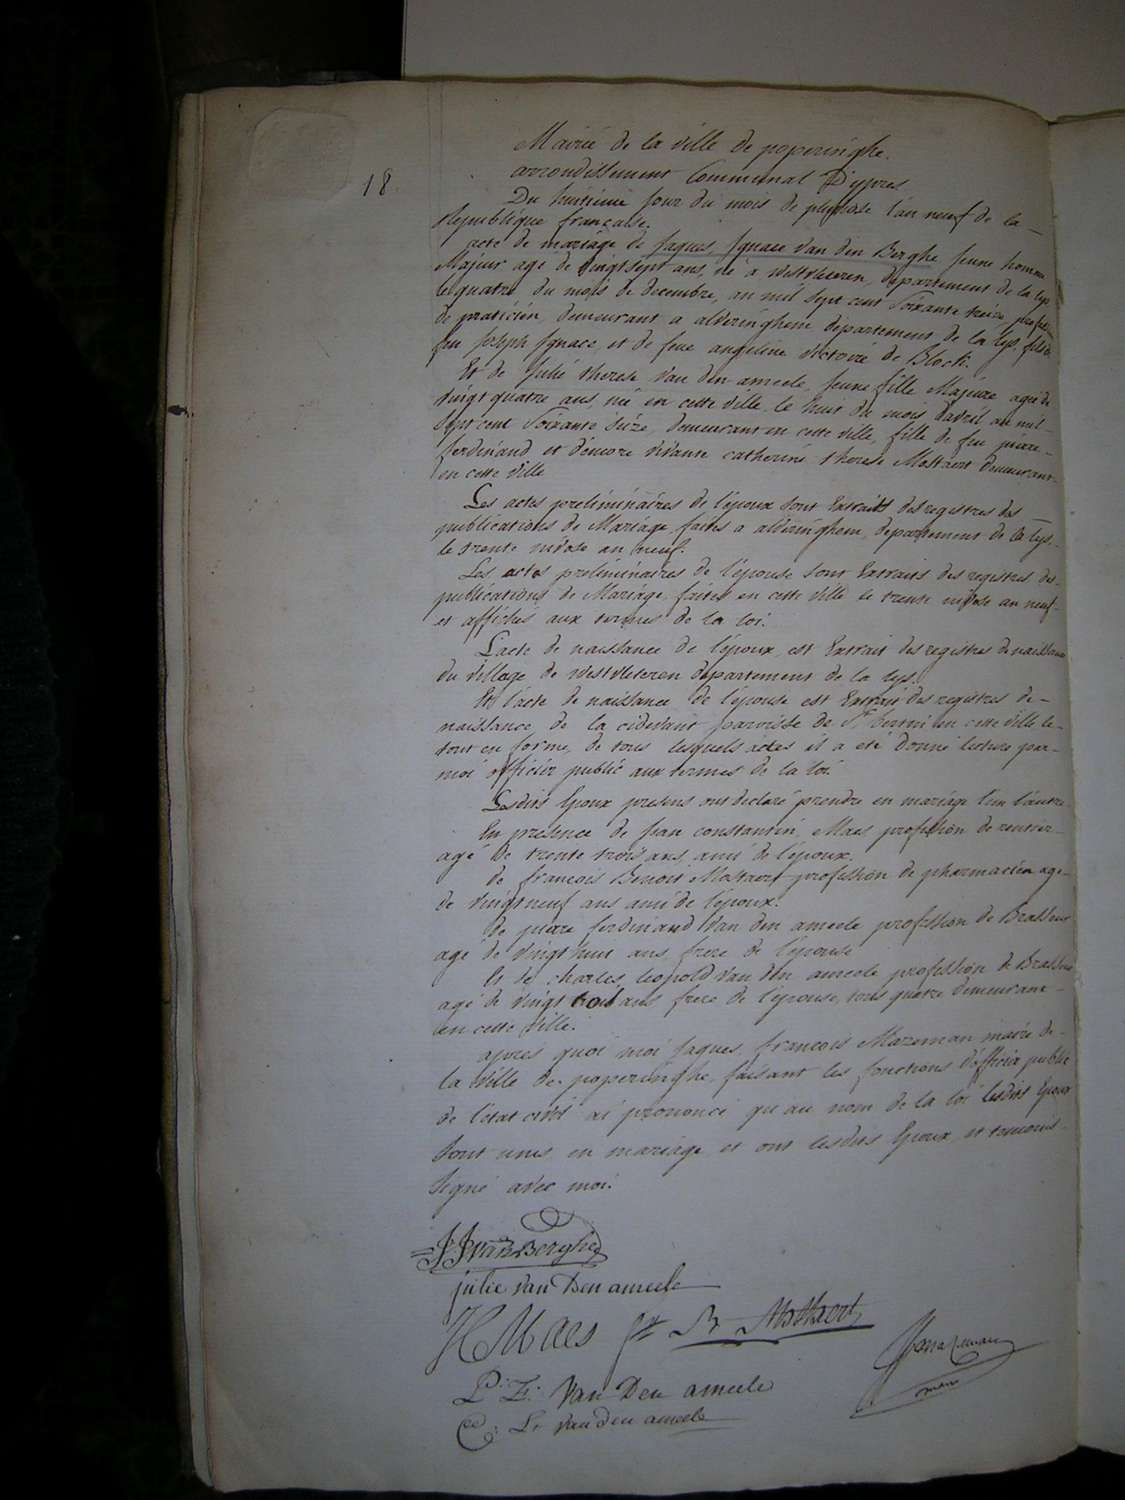 18.
Mairie de la ville de poperinghe.
arrondissement Communal D'ypres
Du huitieme Jour du mois de pluviose l'an neuf de la
Republique francaise.
acte de mariage de Jaques, Ignace Van den Berghe Jeune homme
Majeur agé de vingt sept ans, né a westvleteren, departement de la lys
le quatre du mois de decembre, an mil sept cent Soixante treize, profession
de praticien, demeurant a alveringhem departement de la lys, fils de
feu Joseph Ignace, et de feue angeline victoire de Block.
Et de Julie therese Van den ameele, Jeune fille Majeure agée de
vingt quatre ans, née en cette ville le huit du mois d'avril an mil
Sept cent Soixante Seize, demeurant en cette ville, fille de feu piere
ferdinand et d'encore vivante catherine therese Mostaert demeurant
en cette ville
Les actes preliminaires de l'époux sont Extraits des registres des
publications de Mariage faites a alveringhem, departement de la lys
le trente nivose an neuf.
Les actes preliminaires de l'épouse sont Extraits des registres des
publications de Mariage, faites en cette ville le trente nivose an neuf
et affichés aux termes de la loi.
L'acte de naissance de l'époux, est Extrait des registres de naissance
du village de westvleteren departement de la lys.
Et l'acte de naissance de l'épouse est Extrait des registres de
naissance de la cidevant paroisse de St bertin en cette ville le
tout en forme, de tous lesquels actes il a été donné lecture par
moi officier public aux termes de la loi.
Lesdits Epoux presens ont declaré prendre en mariage l'un l'autre
En presence de Jean constantin Maes profession de rentier
agé de trente trois ans, ami de l'époux.
de francois Benoit Mostaert profession de pharmacien agé
de vingt neuf ans ami de l'époux.
de piere ferdinand Van den ameele profession de Brasseur
agé de vingt huit ans frere de l'épouse
Et de charles, leopold van den ameele profession de Brasseur
agé de vingt trois ans frere de l'épouse, tous quatre demeurant
en cette ville.
apres quoi moi Jaques, francois Mazeman maire de
la ville de poperinghe, faisant les fonctions d'officier public
de l'état civil ai prononcé qu'au nom de la loi lesdits Epoux
Sont unis en mariage et ont lesdits Epoux et temoins
Signé avec moi.
J J van Den Berghe
julie van Den ameele
Maes fr B Mostaert
Mazeman
maire
P: F: Van Den ameele
C: L: van den ameele